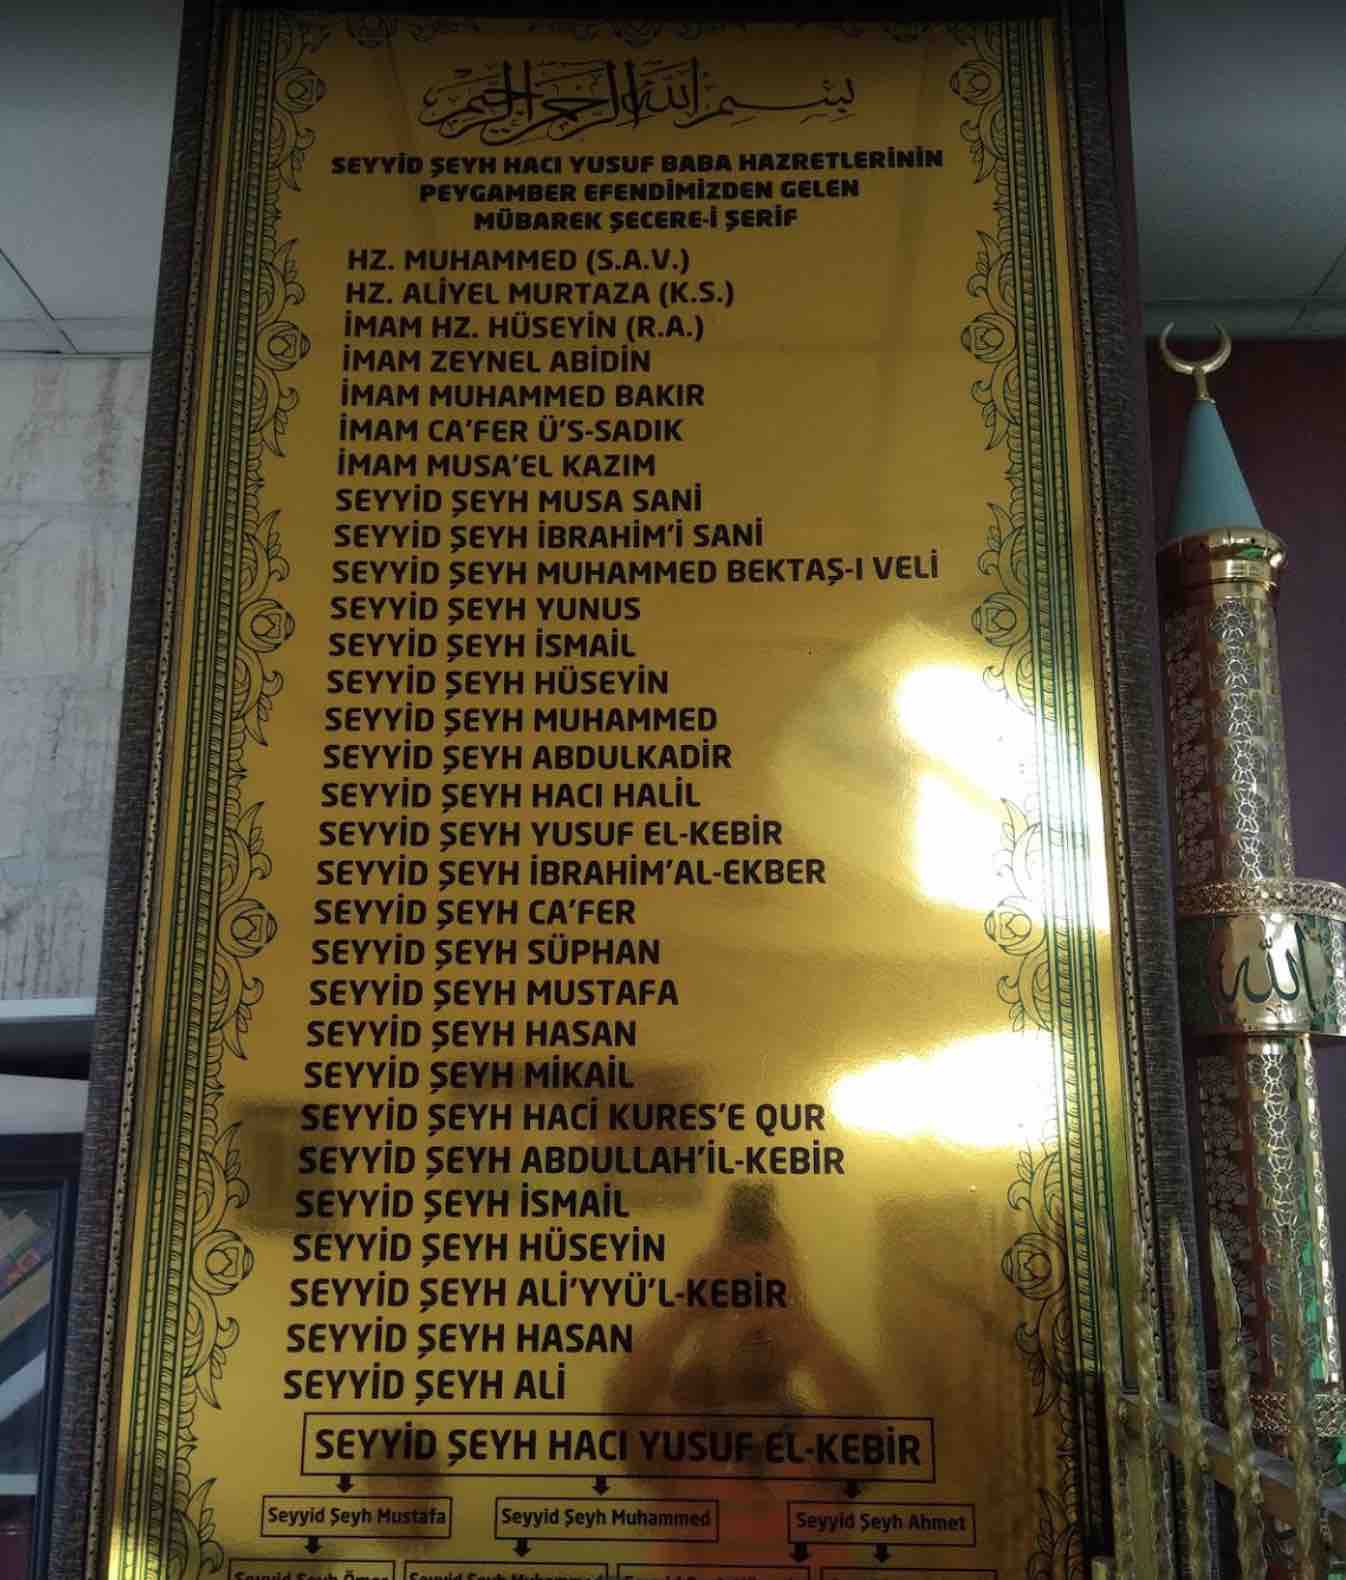 بسم الله الرحمن الرحيم
SEYYİD ŞEYH HACI YUSUF BABA HAZRETLERİNİN
PEYGAMBER EFENDİMİZDEN GELEN
MÜBAREK ŞECERE-İ ŞERİF
HZ. MUHAMMED (S.A.V.)
HZ. ALİYEL MURTAZA (K.S.)
İMAM HZ. HÜSEYİN (R.A.)
İMAM ZEYNEL ABİDİN
İMAM MUHAMMED BAKIR
İMAM CA'FER Ü'S-SADIK
İMAM MUSA'EL KAZIM
SEYYİD ŞEYH MUSA SANİ
SEYYİD ŞEYH İBRAHİM'İ SANİ
SEYYİD ŞEYH MUHAMMED BEKTAŞ-I VELİ
SEYYİD ŞEYH YUNUS
SEYYİD ŞEYH İSMAİL
SEYYİD ŞEYH HÜSEYİN
SEYYİD ŞEYH MUHAMMED
SEYYİD ŞEYH ABDULKADİR
SEYYİD ŞEYH HACI HALİL
SEYYİD ŞEYH YUSUF EL-KEBİR
SEYYİD ŞEYH İBRAHİM'AL-EKBER
SEYYİD ŞEYH CA'FER
SEYYİD ŞEYH SÜPHAN
SEYYİD ŞEYH MUSTAFA
SEYYİD ŞEYH HASAN
SEYYİD ŞEYH MİKAİL
SEYYİD ŞEYH HACİ KURES'E QUR
SEYYİD ŞEYH ABDULLAH'İL-KEBİR
SEYYİD ŞEYH İSMAİL
SEYYİD ŞEYH HÜSEYİN
SEYYİD ŞEYH ALİ'YYÜ'L-KEBİR
SEYYİD ŞEYH HASAN
SEYYİD ŞEYH ALİ
SEYYİD ŞEYH HACI YUSUF EL-KEBİR
Seyyid Şeyh Mustafa
Seyyid Şeyh Muhammed
Seyyid Şeyh Ahmet
Seyyid Şeyh Ömer
Seyyid Şeyh Muhammed
الله